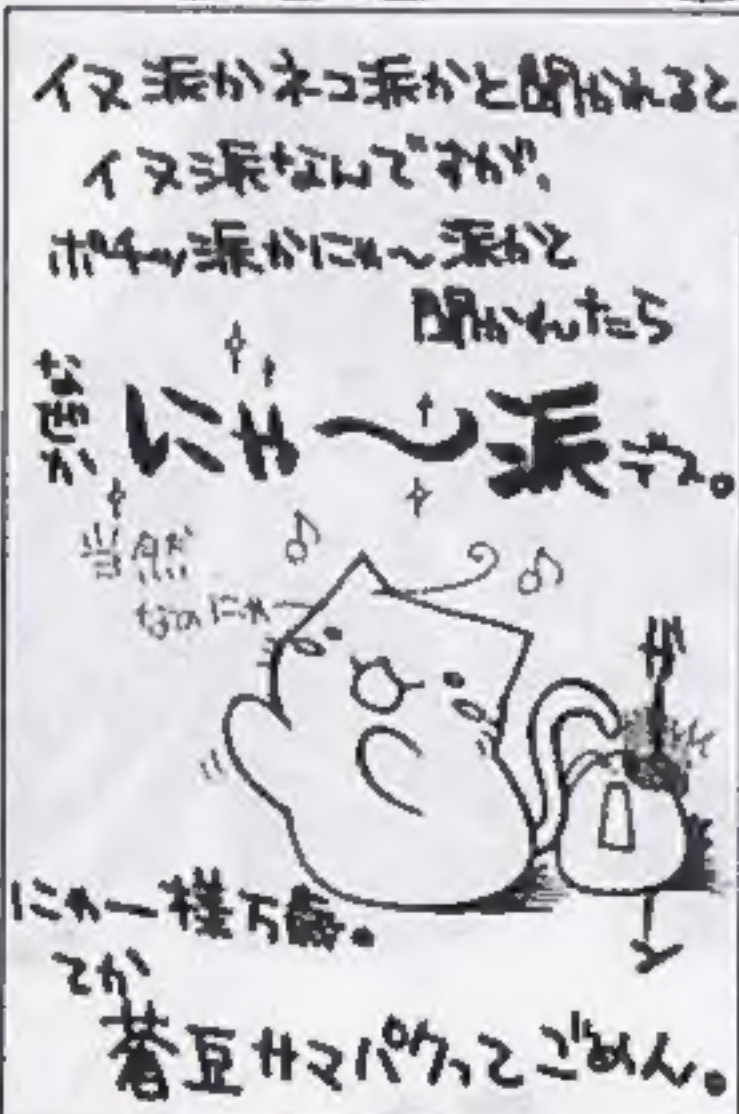 イヌ派かネコ派かと聞かれると
イヌ派なんですが、
ポチッ派かにゃ〜派かと
聞かれたら
なぜか
にゃ〜派デス。
当然だ
なのにゃー
ガーン
にゃー様万歳。
てか
蒼豆サマパクってごめん。